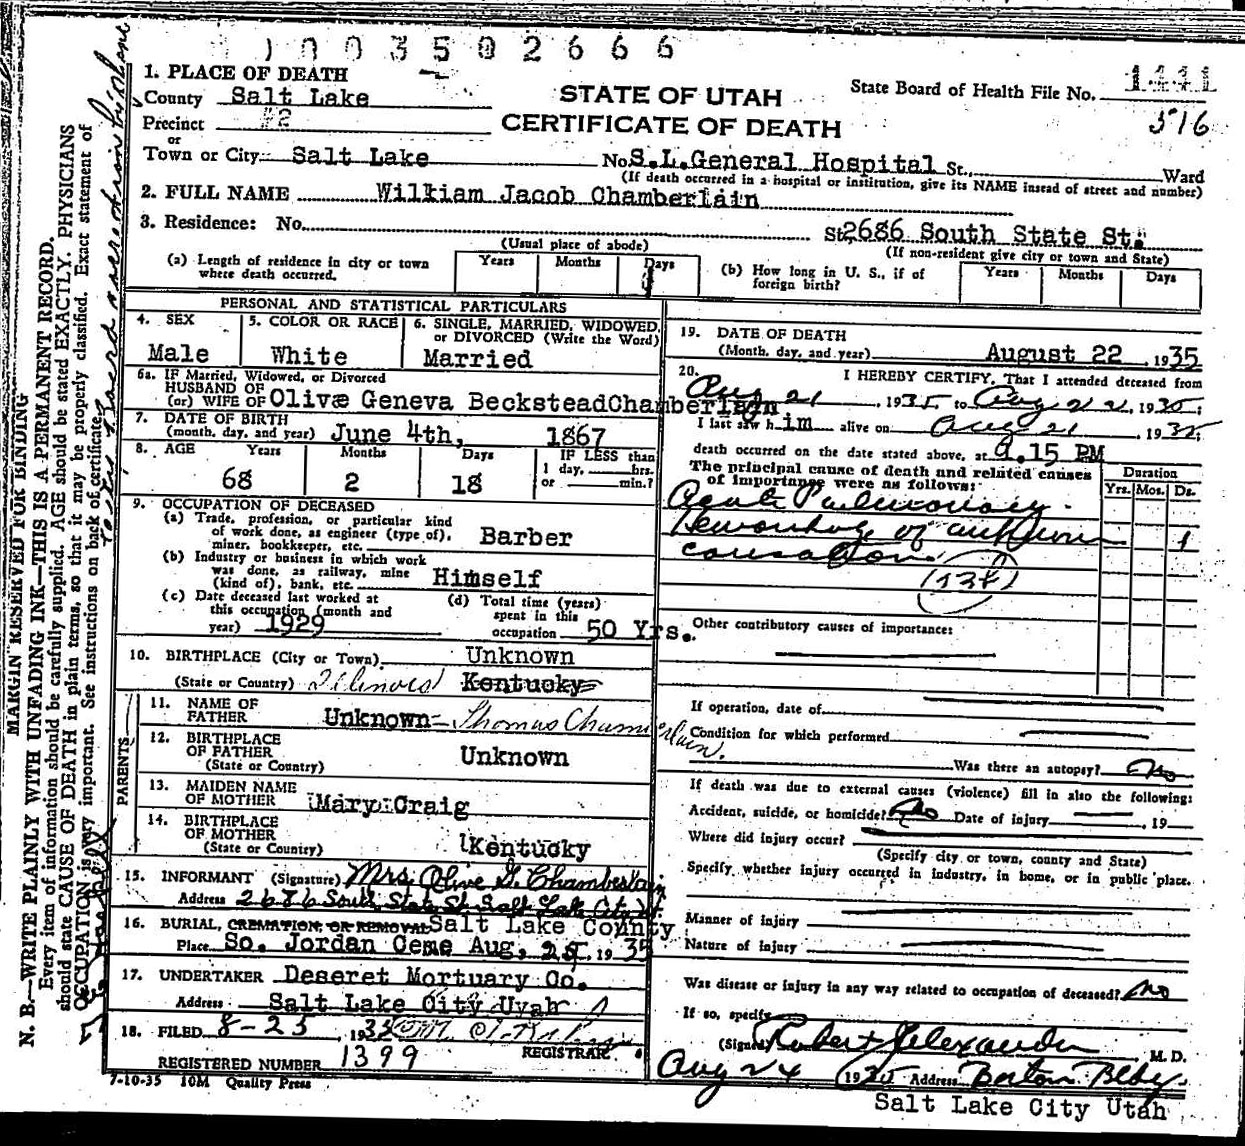 1003502666
1. PLACE OF DEATH
County Salt Lake
STATE OF UTAH
State Board of Health File No. 1441
Precinct #2
CERTIFICATE OF DEATH
516
or
Town or City Salt Lake No. S.L. General Hospital St., Ward
(If death occurred in a hospital or institution, give its NAME instead of street and number)
2. FULL NAME William Jacob Chamberlain
3. Residence: No. St. 2686 South State St.
(Usual place of abode) (If non-resident give city or town and State)
(a) Length of residence in city or town where death occurred. Years Months Days
(b) How long in U. S., if of foreign birth? Years Months Days
PERSONAL AND STATISTICAL PARTICULARS
4. SEX Male
5. COLOR OR RACE White
6. SINGLE, MARRIED, WIDOWED, or DIVORCED (Write the Word) Married
6a. IF Married, Widowed, or Divorced
HUSBAND OF
(or) WIFE OF Olive Geneva Beckstead Chamberlain
7. DATE OF BIRTH
(month, day, and year) June 4th, 1867
8. AGE Years Months Days IF LESS than
1 day, hrs.
or min.?
68 2 18
9. OCCUPATION OF DECEASED
(a) Trade, profession, or particular kind
of work done, as engineer (type of),
miner, bookkeeper, etc. Barber
(b) Industry or business in which work
was done, as railway, mine
(kind of), bank, etc. Himself
(c) Date deceased last worked at
this occupation (month and
year) 1929
(d) Total time (years)
spent in this
occupation 50 Yrs.
10. BIRTHPLACE (City or Town) Unknown
(State or Country) Illinois Kentucky
PARENTS
11. NAME OF
FATHER Unknown Thomas Chamberlain.
12. BIRTHPLACE
OF FATHER
(State or Country) Unknown
13. MAIDEN NAME
OF MOTHER Mary Craig
14. BIRTHPLACE
OF MOTHER
(State or Country) Kentucky
15. INFORMANT (Signature) Mrs Olive G. Chamberlain
Address 2686 South State St. Salt Lake City Ut.
16. BURIAL, CREMATION, OR REMOVAL Salt Lake County
Place So. Jordan Ceme Aug, 25, 1935
17. UNDERTAKER Deseret Mortuary Co.
Address Salt Lake City Uyah
18. FILED 8-25, 1935
REGISTRAR.
REGISTERED NUMBER 1399
7-10-35 10M Quality Press
19. DATE OF DEATH
(Month, day, and year) August 22, 1935
20. I HEREBY CERTIFY, That I attended deceased from
Aug 21, 1935, to Aug 22, 1935;
I last saw him alive on Aug 21, 1935;
death occurred on the date stated above, at 9.15 PM
The principal cause of death and related causes
of importance were as follows:
Duration
Yrs. Mos. Ds.
Acute Pulmonary
Hemorrhage of unknown 1
causation
Other contributory causes of importance:
If operation, date of
Condition for which performed
Was there an autopsy? No
If death was due to external causes (violence) fill in also the following:
Accident, suicide, or homicide? No Date of injury , 19
Where did injury occur?
(Specify city or town, county and State)
Specify whether injury occurred in industry, in home, or in public place.
Manner of injury
Nature of injury
Was disease or injury in any way related to occupation of deceased? No
If so, specify
(Signed) Robert Alexander, M. D.
Aug 24 1935 Address Boston Bldg.
Salt Lake City Utah
MARGIN RESERVED FOR BINDING
N. B.—WRITE PLAINLY WITH UNFADING INK—THIS IS A PERMANENT RECORD.
Every item of information should be carefully supplied. AGE should be stated EXACTLY. PHYSICIANS
should state CAUSE OF DEATH in plain terms, so that it may be properly classified. Exact statement of
OCCUPATION is very important. See instructions on back of certificate.